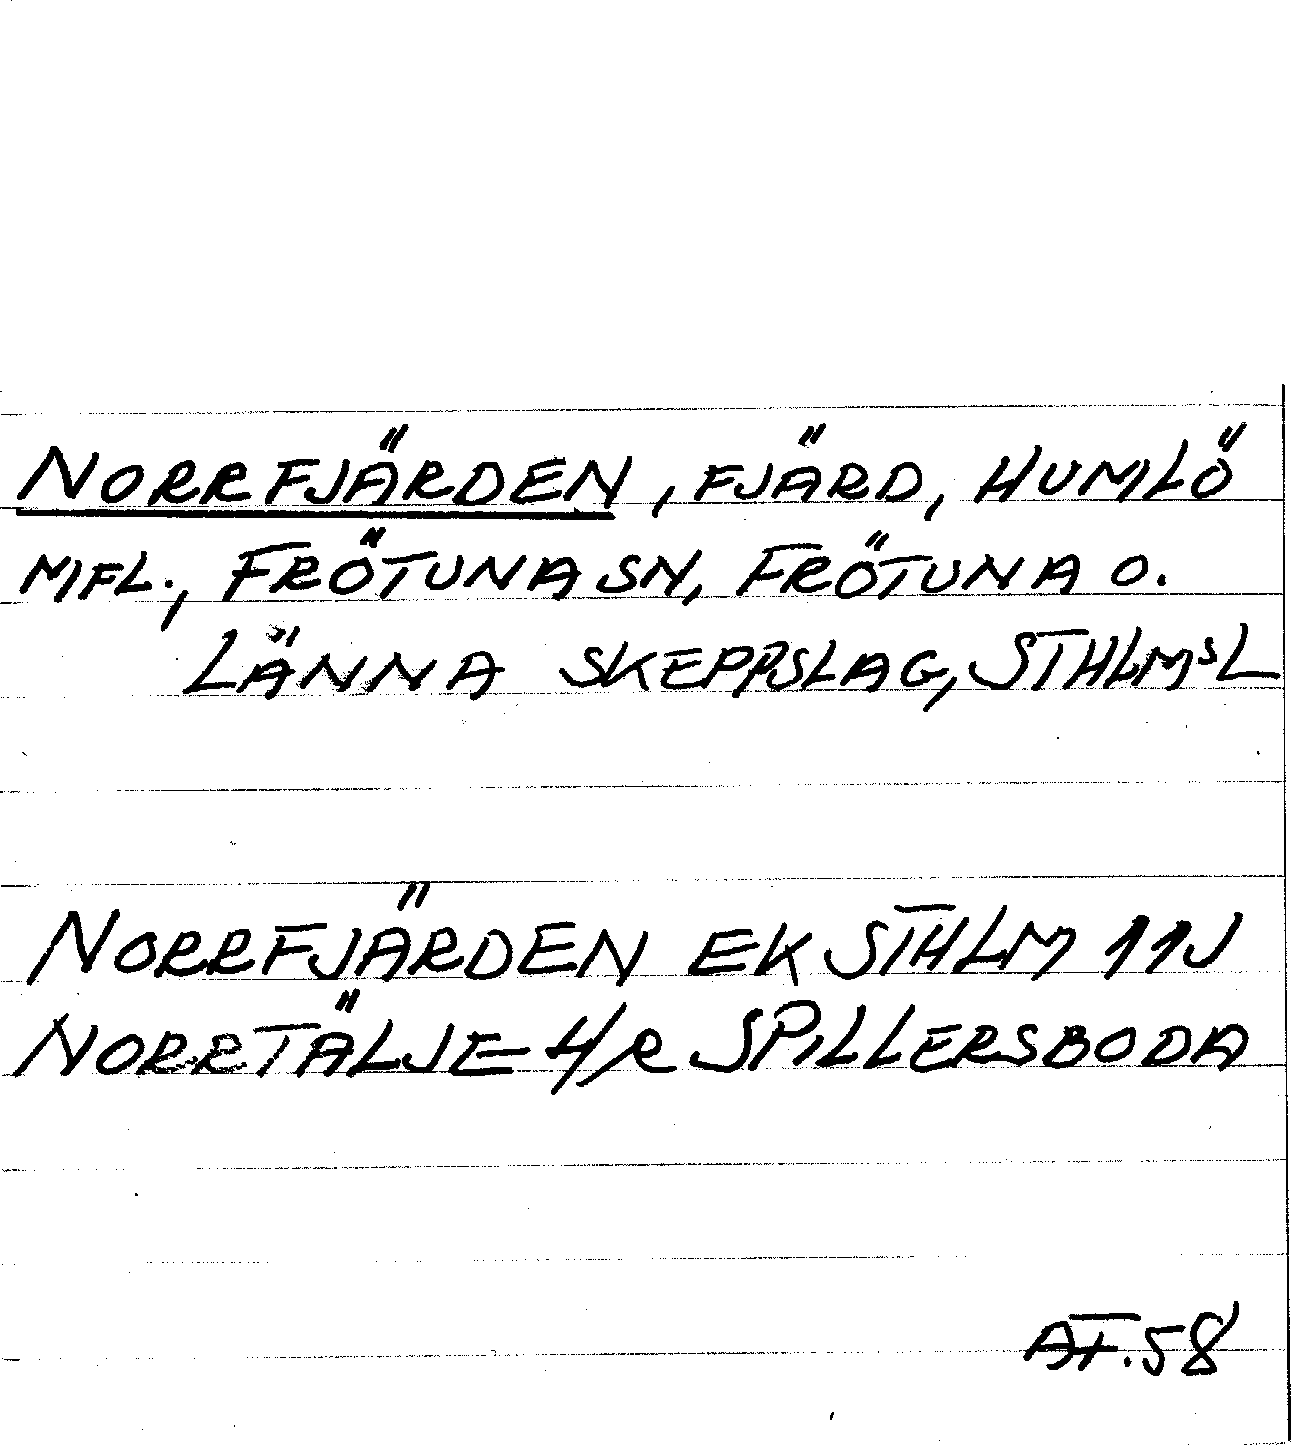 NORRFJÄRDEN, FJÄRD, HUMLÖ
MFL., FRÖTUNA SN, FRÖTUNA O.
LÄNNA SKEPPSLAG, STHLMSL
NORRFJÄRDEN EK STHLM 11J
NORRTÄLJE 4/R SPILLERSBODA
AF.58